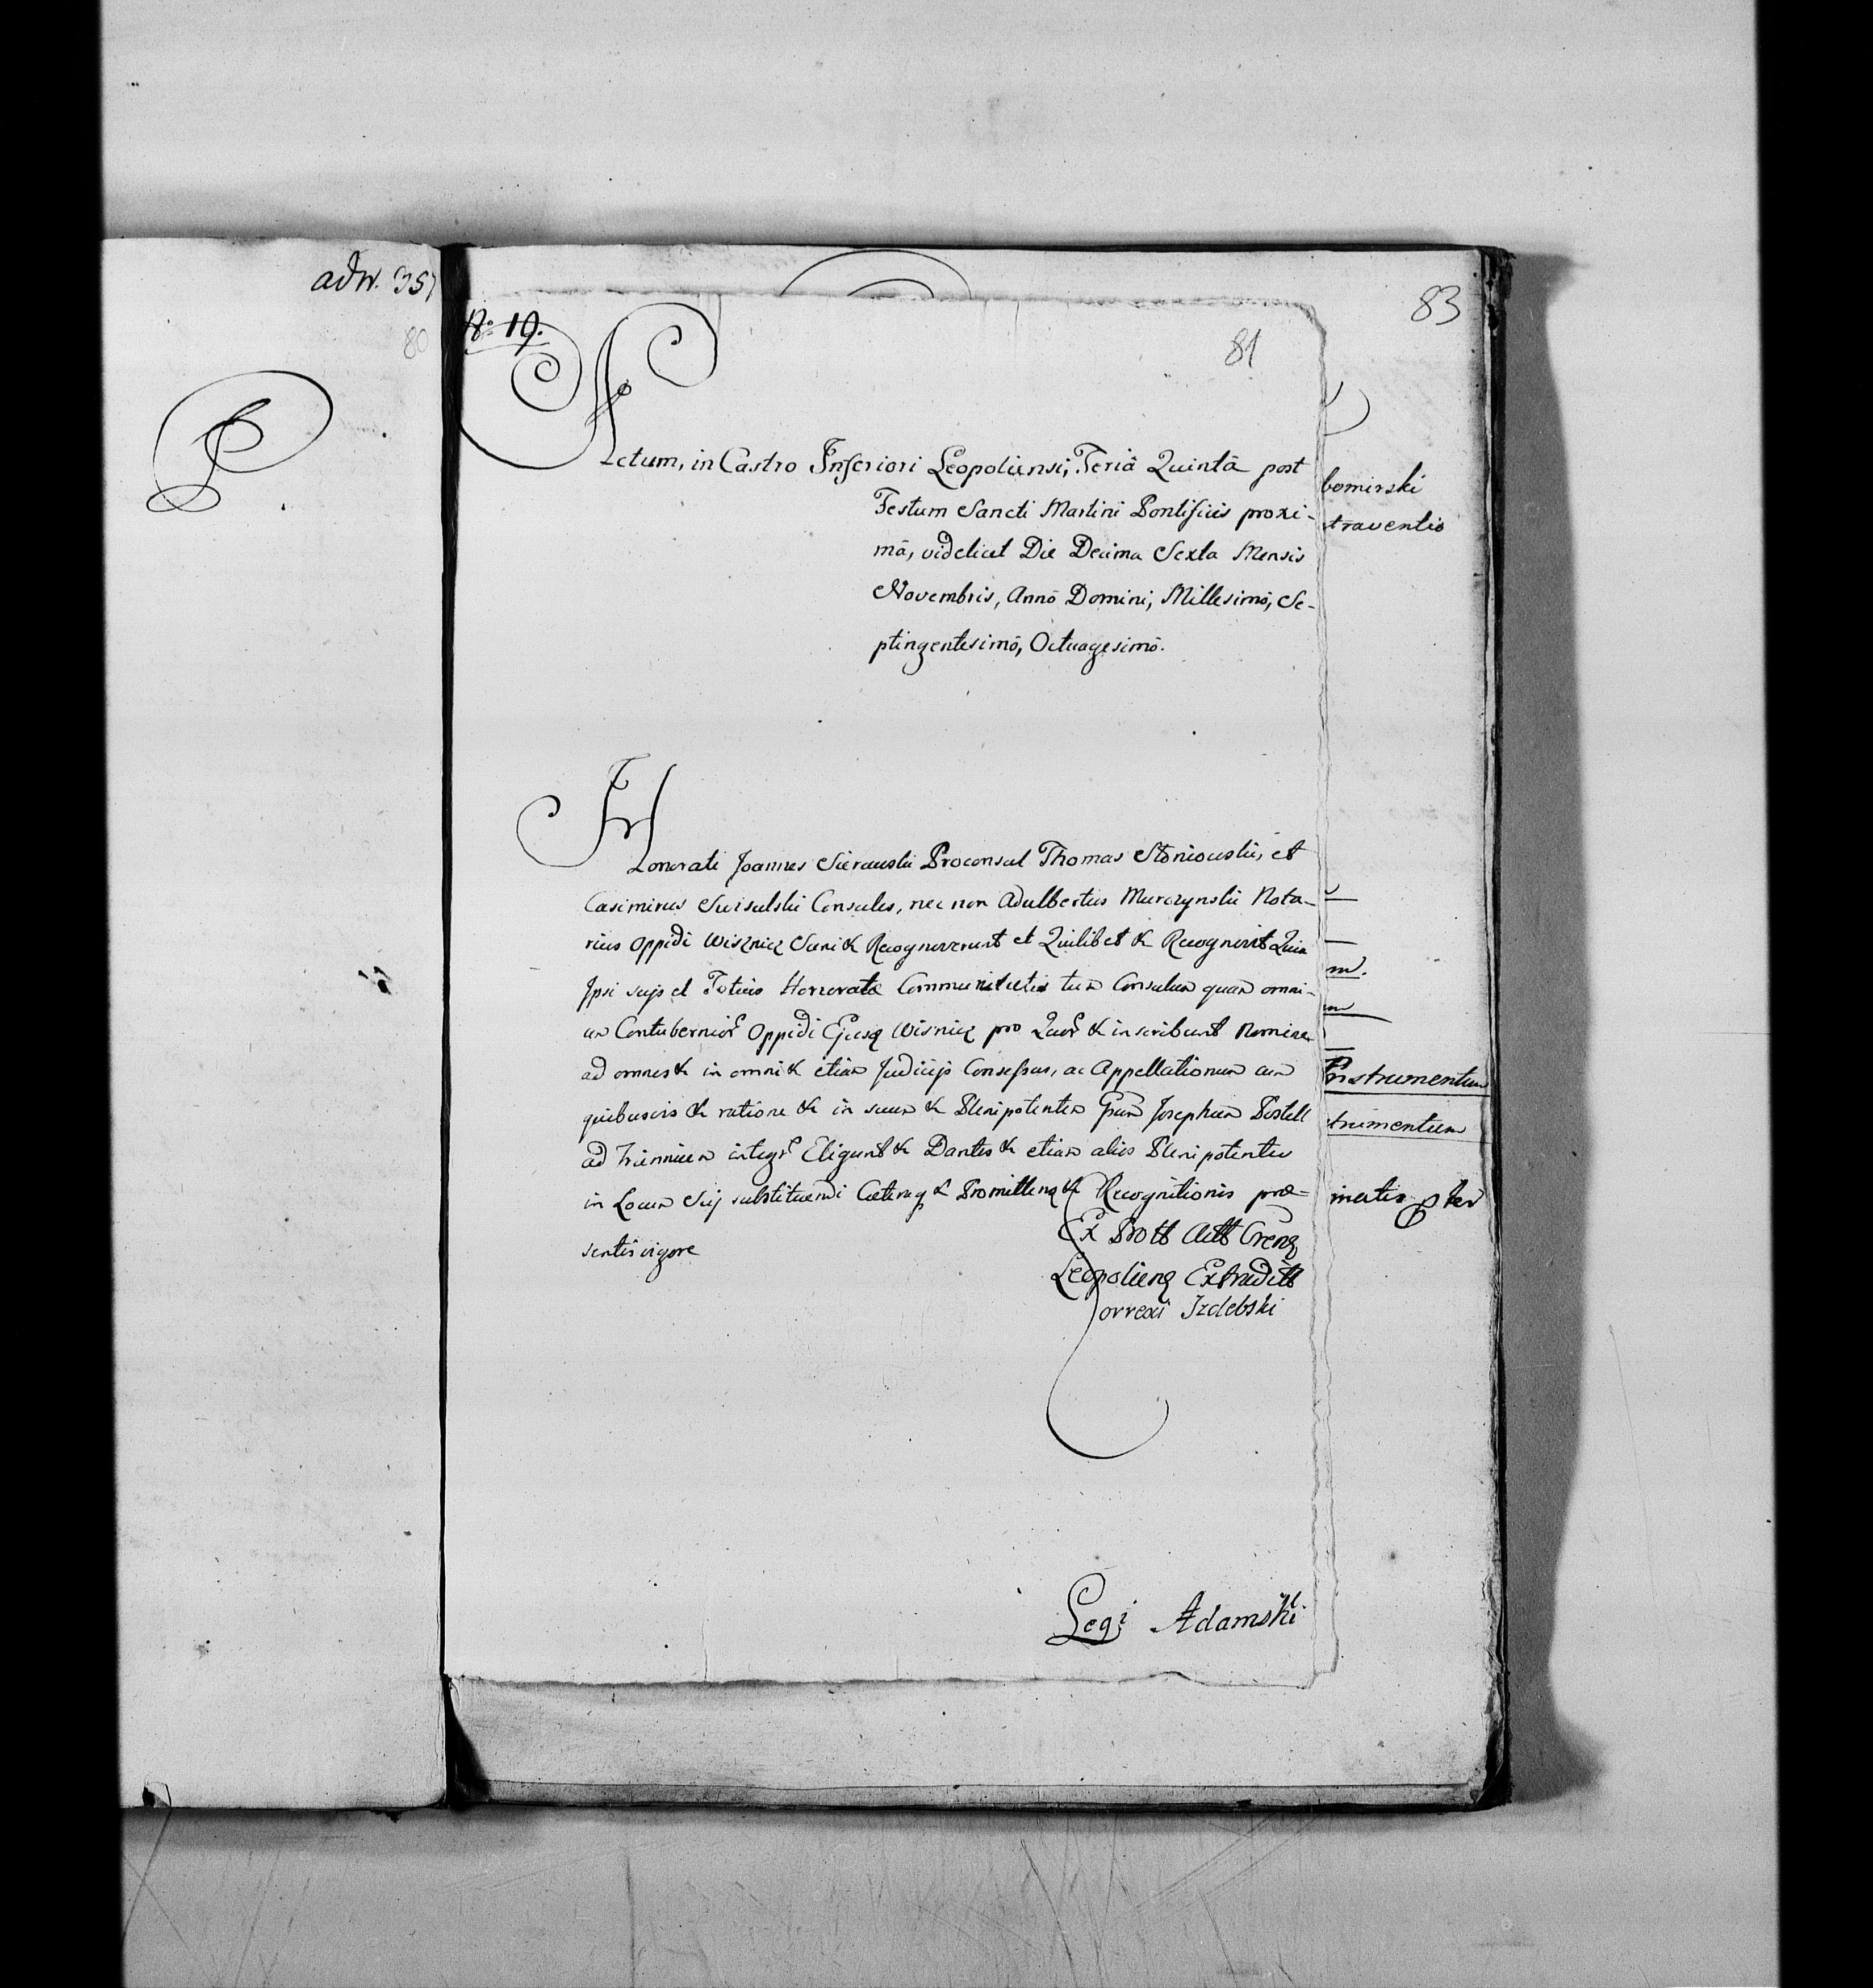 adw. 357
80
No 19.
81
83
Actum, in Castro Inferiori Leopoliensi, Feriâ Quintâ post
Festum Sancti Martini Pontificis proxi-
mâ, videlicet Die Decima Sexta Mensis
Novembris, Annô Domini, Millesimô, Se-
ptingentesimô, Octuagesimô.
bomirski
traventio
Honorati Joannes Sierawski Proconsul Thomas Stoniowski, et
Casimirus Swisulski Consules, nec non Adulbertus Murczynski Nota-
rius Oppidi Wisznicz Sani & Recognoverunt et Quilibet & Recognovit Quia
Ipsi suo et Totius Honorata Communitatis tum Consulum quam omni-
um Contubernior Oppidi Ejusq Wisnicz pro Quor & inscribunt Nomine
ad omnes & in omni & etiam Judicijs Consessus, ac Appellationum cum
quibusvis & ratione & in suum & Plenipotentem Gsum Josephum Postell
ad trienniem integr Eligunt & Dantes & etiam alios Plenipotentes
in Locum Sui substituendi Cæteraq & Promittenq & Recognitionis præ-
sentis vigore
Ex Prott Actt Crens
Leopoliens Extradit
Correxi Izdebski
m.
m
Instrumentum
trumentum
Legi Adamski